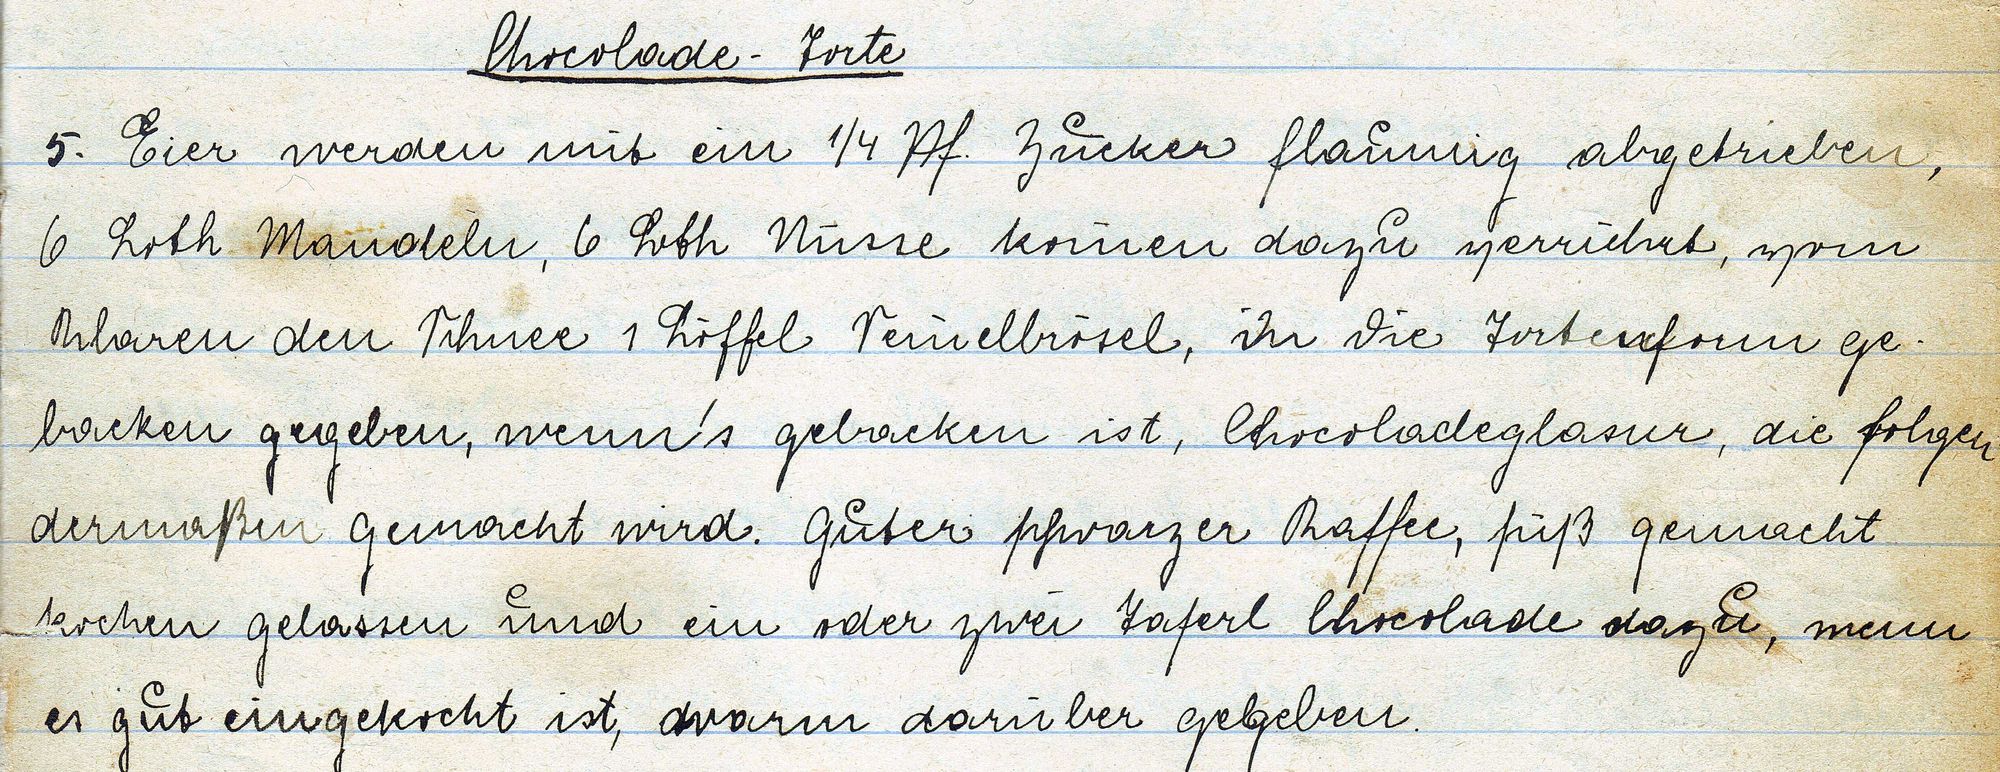 Chocolade-Torte
5. Eier werden mit ein 1/4 Pf. Zucker flaumig abgetrieben,
6 Loth Mandeln, 6 Loth Nüsse kom̄en dazu verrührt, vom
Klaren den Schnee 1 Löffel Sem̄elbrösel, in die Tortenform ge-
backen gegeben, wenn's gebacken ist, Chocoladeglasur, die folgen
dermaßen gemacht wird. Guter schwarzer Kaffee, süß gemacht
kochen gelassen und ein oder zwei Taferl Chocolade dazu, wenn
es gut eingekocht ist, warm darüber gegeben.